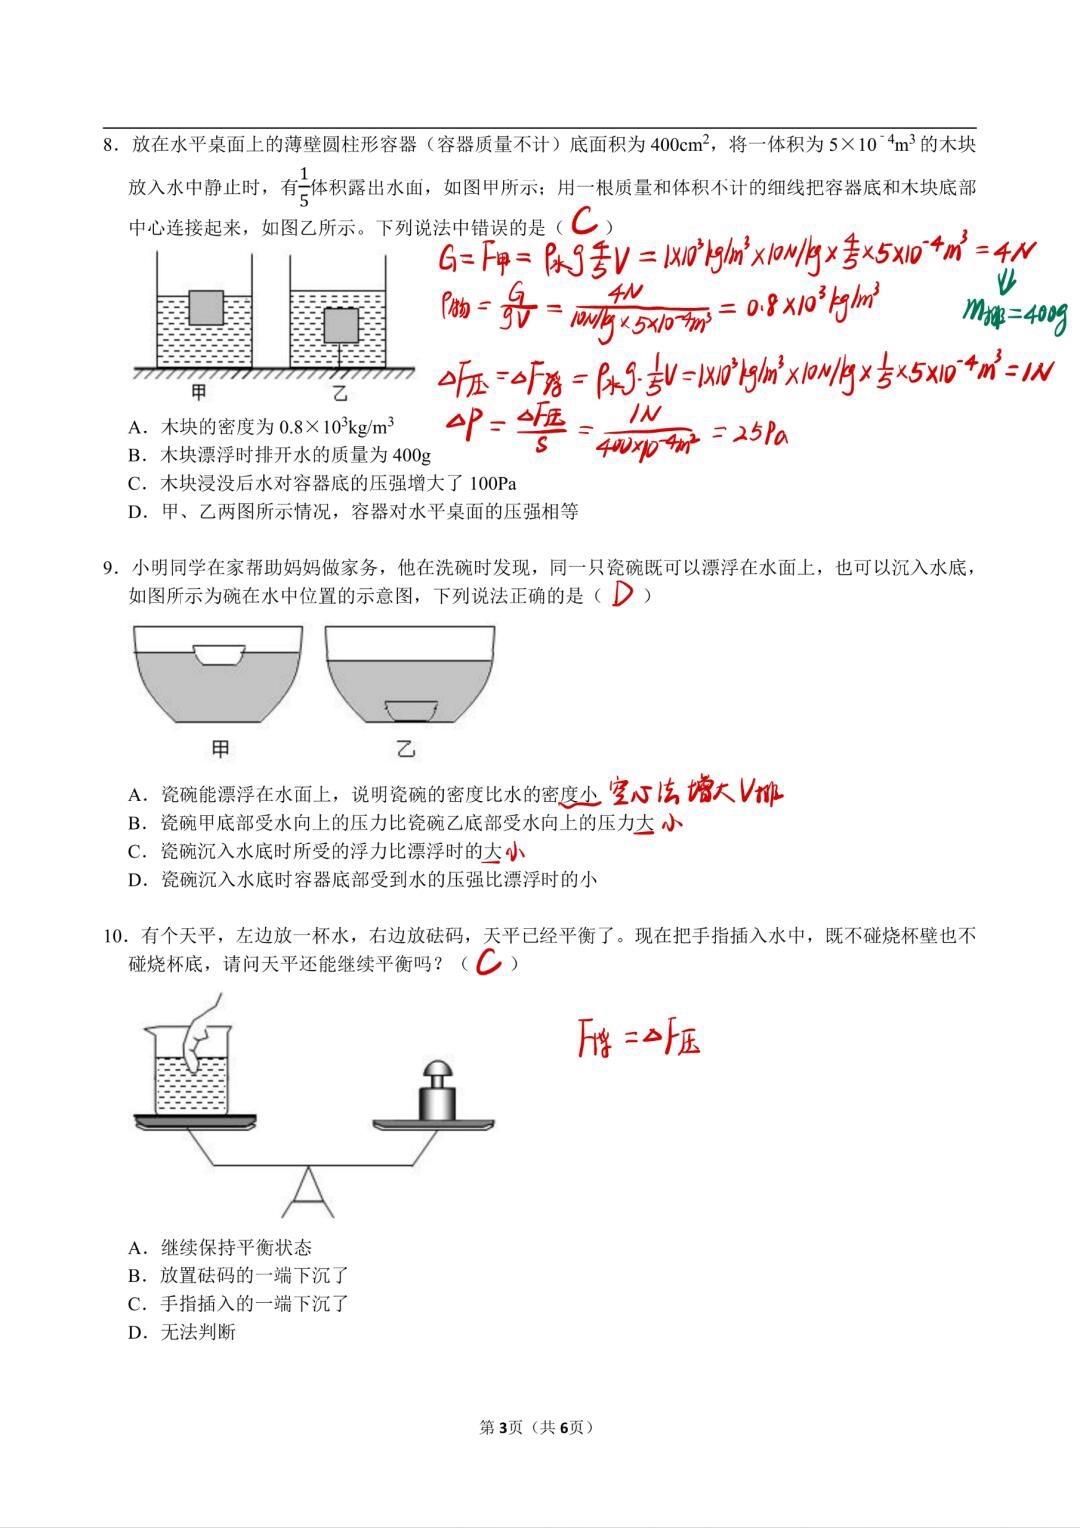 8．放在水平桌面上的薄壁圆柱形容器（容器质量不计）底面积为 400cm²，将一体积为 5×10⁻⁴m³ 的木块
放入水中静止时，有1/5体积露出水面，如图甲所示；用一根质量和体积不计的细线把容器底和木块底部
中心连接起来，如图乙所示。下列说法中错误的是（ C ）
G=F甲=ρ水g4/5V=1×10³kg/m³×10N/kg×4/5×5×10⁻⁴m³=4N
ρ物=G/gV=4N/10N/kg×5×10⁻⁴m³=0.8×10³kg/m³
m排=400g
△F压=△F浮=ρ水g·1/5V=1×10³kg/m³×10N/kg×1/5×5×10⁻⁴m³=1N
△P=△F压/S=1N/400×10⁻⁴m²=25Pa
甲 乙
A．木块的密度为 0.8×10³kg/m³
B．木块漂浮时排开水的质量为 400g
C．木块浸没后水对容器底的压强增大了 100Pa
D．甲、乙两图所示情况，容器对水平桌面的压强相等
9．小明同学在家帮助妈妈做家务，他在洗碗时发现，同一只瓷碗既可以漂浮在水面上，也可以沉入水底，
如图所示为碗在水中位置的示意图，下列说法正确的是（ D ）
甲 乙
A．瓷碗能漂浮在水面上，说明瓷碗的密度比水的密度小 空心法增大V排
B．瓷碗甲底部受水向上的压力比瓷碗乙底部受水向上的压力大 小
C．瓷碗沉入水底时所受的浮力比漂浮时的大 小
D．瓷碗沉入水底时容器底部受到水的压强比漂浮时的小
10．有个天平，左边放一杯水，右边放砝码，天平已经平衡了。现在把手指插入水中，既不碰烧杯壁也不
碰烧杯底，请问天平还能继续平衡吗？（ C ）
F浮=△F压
A．继续保持平衡状态
B．放置砝码的一端下沉了
C．手指插入的一端下沉了
D．无法判断
第 3页（共 6页）